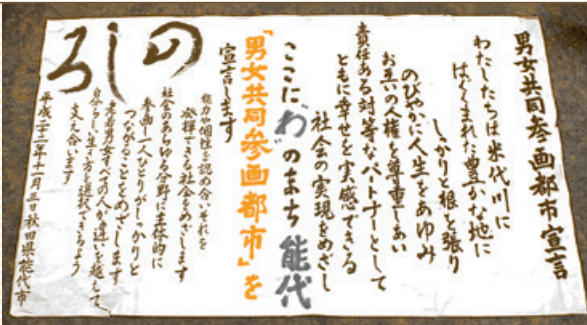 男女共同参画都市宣言
わたしたちは米代川に
はぐくまれた豊かな地に
しっかりと根を張り
のびやかに人生をあゆみ
お互いの人権を尊重しあい
責任ある対等なパートナーとして
ともに幸せを実感できる
社会の実現をめざし
ここに"わ"のまち能代
「男女共同参画都市」を
宣言します
の
能力や個性を認め合い それを
発揮できる社会をめざします
し
社会のあらゆる分野に主体的に
参画し一人ひとりがしっかりと
つながることをめざします
ろ
老若男女すべての人が違いを越えて
自分らしい生き方を選択できるよう
支え合います
平成二十二年十一月三日 秋田県能代市